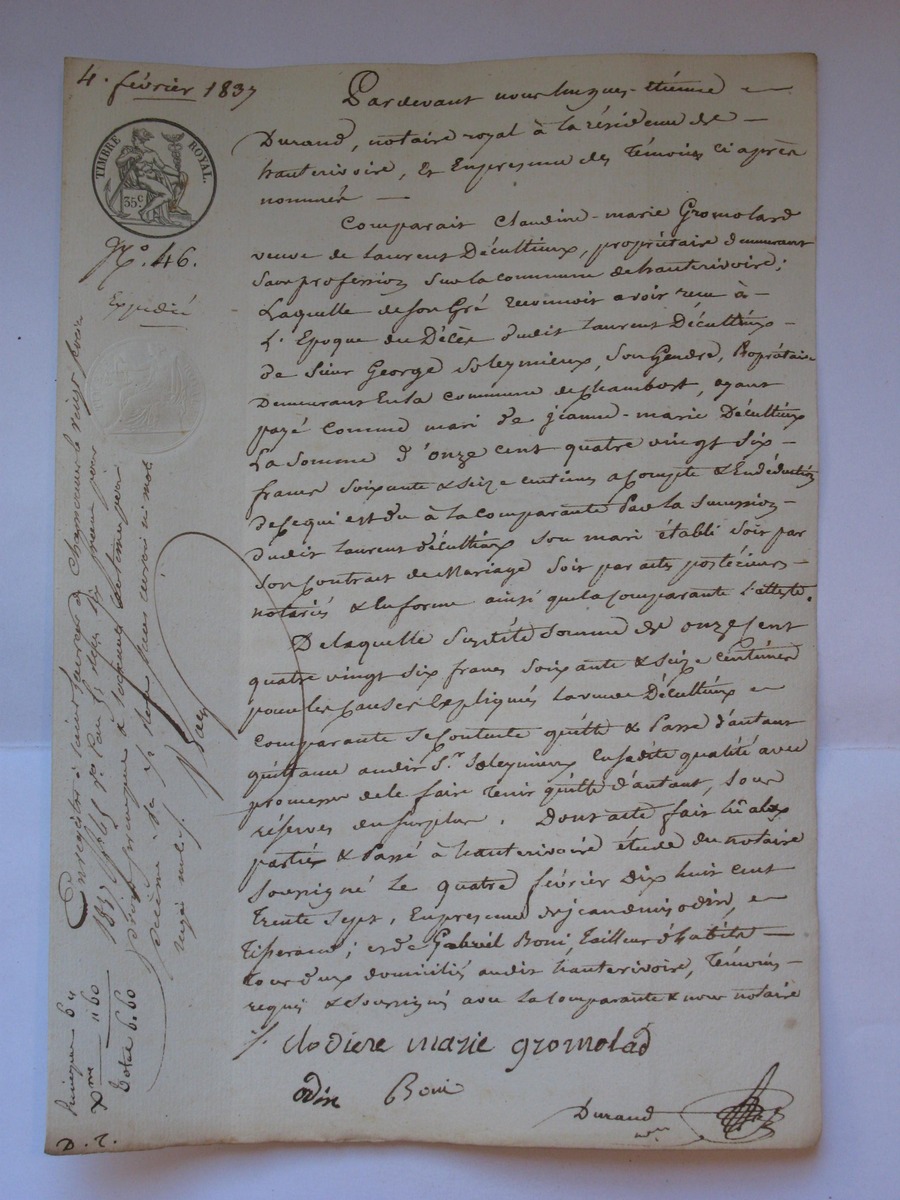 4. février 1837
TIMBRE ROYAL.
35c
N.° 46.
Expédié
Pardevant nous hugues-étienne
Durand, notaire royal à la résidence de
hauterivoire, et En presence des Témoins ci après
nommés
Comparait Claudine-marie Gromolard
veuve de Laurent Décultieux, propriétaire demeurant
sa profession sur la commune de hauterivoire;
Laquelle de son Gré reconnoit avoir reçu à
L'Epoque du Décès dudit Laurent Décultieux
de Sieur George Soleymieux, Son Gendre, Propriétaire
Demeurant En la commune de Chambost, ayant
payé comme mari de jeanne-marie Décultieux
La Somme d'onze cent quatre vingt six
francs soixante & seize centimes acompte & En déduction
de Ce qui est du à la comparante Par la succession
dudit Laurent Décultieux son mari établi soit par
Son Contrat de Mariage soit par actes postérieurs
notariés & En forme ainsi que la Comparante l'atteste.
De laquelle Susdite Somme de onze Cent
quatre vingt Six francs Soixante & Seize Centimes
pour les Causes Expliquées la veuve Décultieux
Comparante Se Contente quitte & Passe d'autant
quittance audit S.r Soleymieux En sadite qualité avec
promesse de le faire tenir quitte d'autant, sous
réserves du surplus. Dont acte fait lu aux
parties & Passé à hauterivoire étude du notaire
Soussigné Le quatre février dix huit cent
Trente Sept, En presence de jean denis odin,
Tisserand; et de Gabriel Boni, Tailleur d'habits
tous deux domiciliés audit hauterivoire, Témoins
requis & Soussignés avec La Comparante & nous notaire
clodiere marie gromolad
odin Boni
Durand
Enregistré à Saint Laurent de Chamousset le vingt février
1837 f° 65 r° Cases 5 reçu pour
principal cinq francs & soixante centimes pour
décime
rayé nul.
Principal 6 "
Xme " 60
Total 6. 60
D. r.